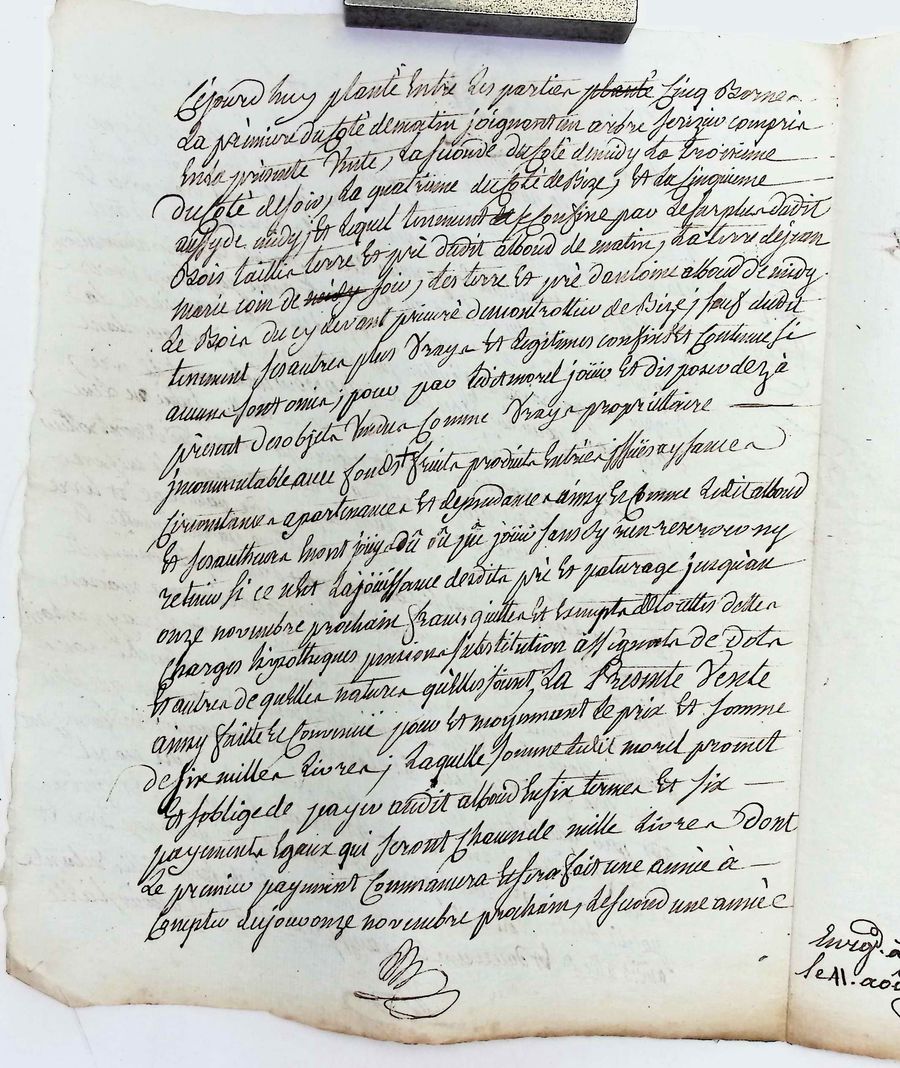 Cejourd huy planté entre les parties planté Cinq Bornes
La premiere du Coté de matin joignant un arbre serizier compris
En la presente Vente, La seconde du Coté de midy La troisieme
Du Coté de soir, La quatrieme du Coté de Bize, Et La Cinquieme
aussy de midy, Et Lequel tenement Et se Confine par Le surplus dudit
Bois taillis terre Et pré dudit alboud de matin, La terre de jean
marie coin de midy soir, Les terre Et pré dantoine alboud de midy
Le Bois du cy devant prieuré de montrottier de Bize, sauf dudit
tenement ses autres plus Vrays Et Legitimes confins Et Contenue si
aucuns sont omis, pour par Ledit morel joüir Et disposer dez à
present des objets Vendus Comme Vrays proprietaire
jncommutable avec fonds fruits produits Entrées jssües aysances
Circonstances apartenances Et dependances ainsy Et Comme Ledit alboud
Et ses autheurs En ont joüy dû où pû joüir sans y rien reserver ny
retenir si ce n'est La joüissance desdits pré Et paturage jusqu'au
onze novembre prochain francs quittes Et Exempts de toutes dettes
Charges hypotheques pensions substitution assignats de dots
Et autres de quelles natures quelles soient, La Presente Vente
ainsy faitte Et Convenüe pour Et moyennant Le prix Et somme
de six milles Livres, Laquelle somme Ledit morel promet
Et soblige de payer audit alboud En six termes Et six
payements Egaux qui seront Chacun de mille Livres Dont
Le premier payement Commancera Et sera fait une année à
Compter du jour onze novembre prochain, Le second une année
Enrgd. à
le 11. aoû